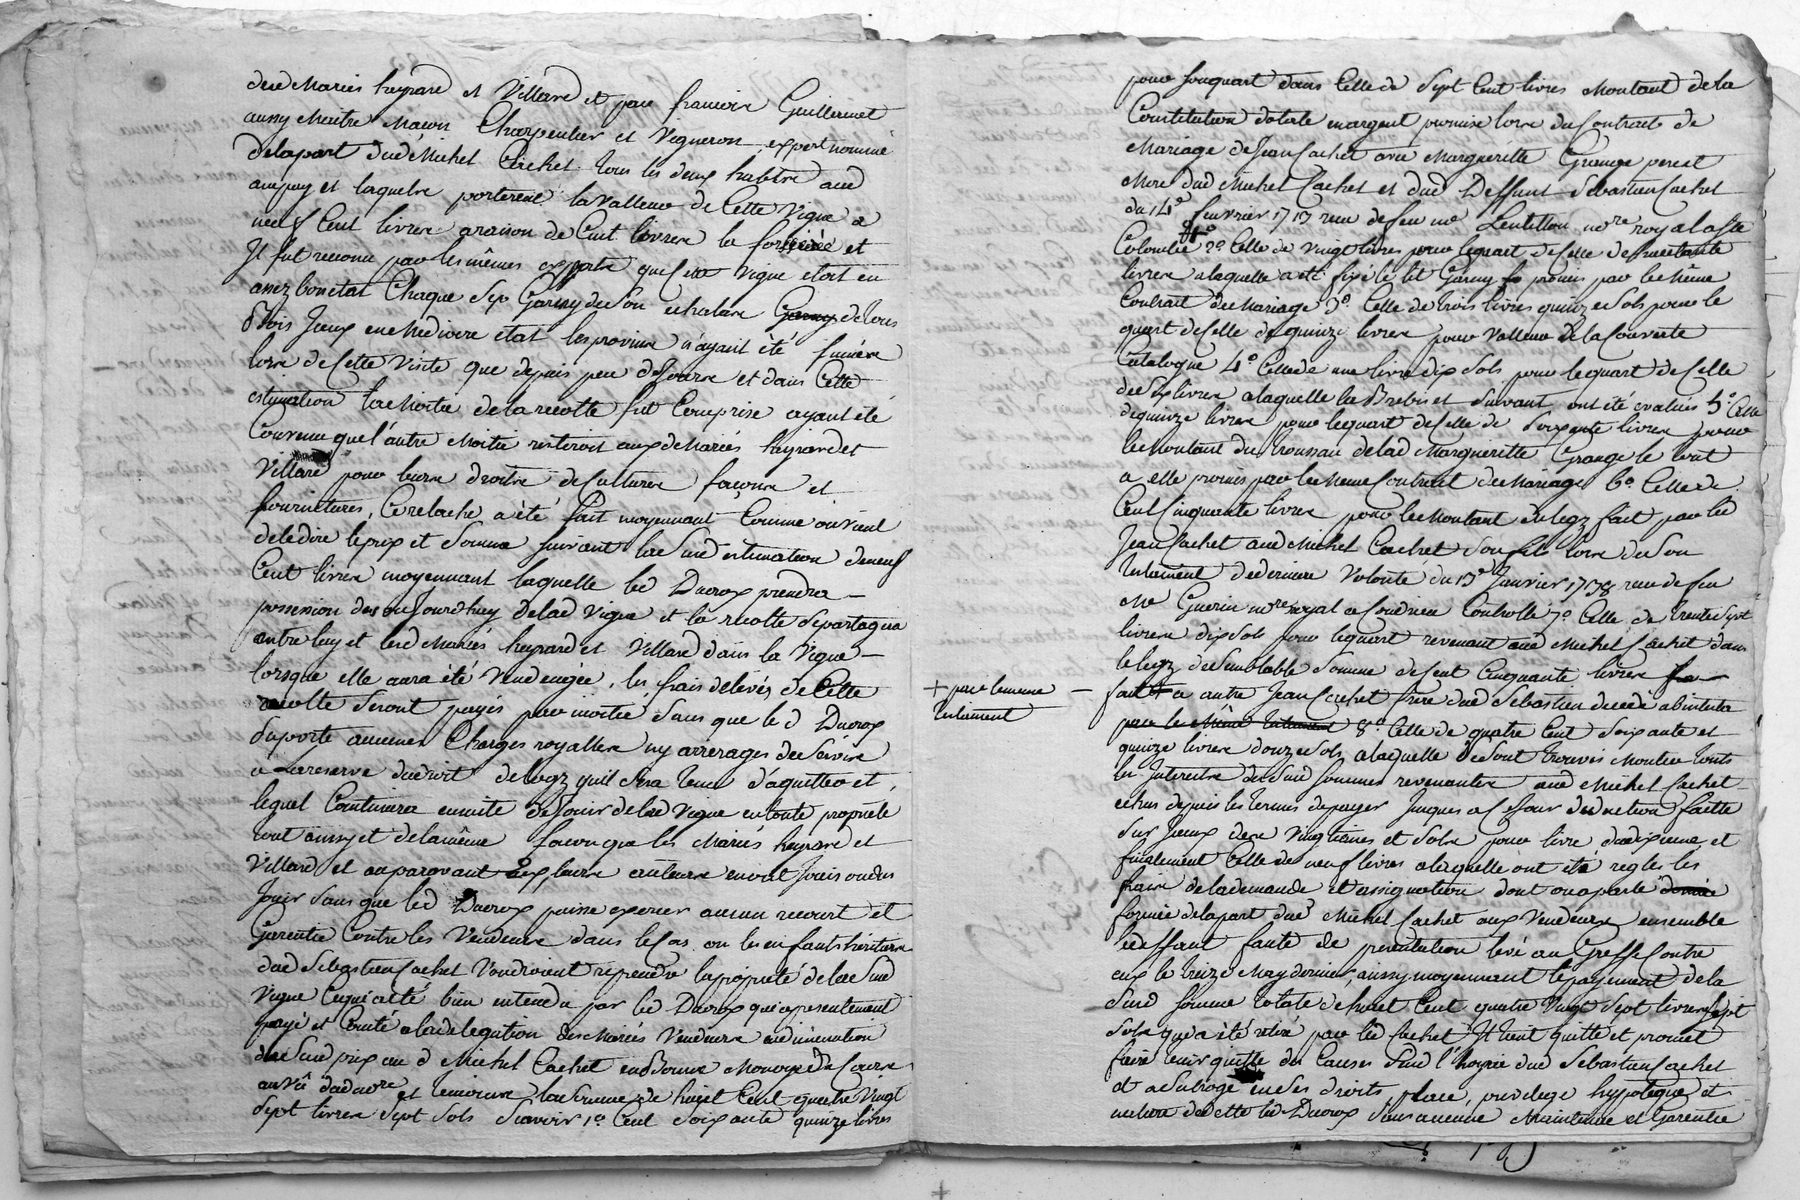 desd Mariés heyrard et Villard et par francois Guillermet
aussy Maitre Macon Charpentier et Vigneron expert nommé
delapart dud Michel Cachet tous les deux habtns aud
ampuy et laquelre porterent lavalleur de Cette Vigne a
neuf Cent livres araison de Cent livres la fosserée et
Il fut reconu par lesmêmes experts queCette Vigne etoit en
assez bon etat Chaque Sep Garny deSon echalas Garny detrois
trois Jeux en Mediocre etat les provins n'ayant été fumés
lors deCette Visite que depuis peu deJours et dans Cette
estimation laMoitié de la recolte fut Comprise ayant été
Convenu quel'autre Moitié resteroit auxdMariés heyrard et
Villard pour leurs droits deCultures façons et
fournitures, Ce relache a été fait moyennant Comme on vient
deledire leprix et Somme suivant laSusd estimation deneuf
Cent livres moyennant laquelle led Ducros prendra
possession des aujourdhuy delad Vigne et la recolte Separtagera
entre luy et lesd Mariés heyrard et Villard dans la Vigne
lorsque elle aura été Vendengée, les frais delevés de Cette
recolte Seront payés par moitié Sans que led Ducros
Suporte aucunes Charges royalles ny arrerages deServis
a lareserve dudroit delogz quil Sera tenu d'aquitter et
lequel Continuera ensuite deJouir delad Vigne entoute proprieté
tout aussy et delamême façon que les Mariés heyrard et
Villard et auparavant eux leurs auteurs enont Jouis ou du
Jouir Sans que led Ducros puisse exercer aucun recourt et
Garentie Contre les Vendeurs dans leCas ou les enfants héritiers
dud Sebastien Cachet Voudroient reprendre la propriété delad Susd
Vigne Cequi a été bien entendu par led Ducros qui a presentement
payé et Compté aladelegation desMariés Vendeurs endiminution
du Susd prix au d Michel Cachet en Bonne Monoye de Cours
auVû dud nore et temoins laSomme de huit Cent quatre Vingt
Sept livres Sept Sols Scavoir 1o Cent Soixante quinze livres
pour Sonquart dans Cellede Sept Cent livres Montant dela
Constitution dotale enargent promise lors duContrat de
Mariage deJeanCachet avec Margueritte Grange pereet
Mere dud Michel Cachet et dud Deffunt Sebastien Cachet
du 14e fevrier 1717 recu defeu me Lentillon nore royal aSte
Colombe 2o Celle de Vingt livres pour lequart deCelle de
livres alaquelle a été fixé le lit Garny promis par leMême
Contrat deMariage 3o Celle de trois livres quinze Sols pour le
quart deCelle de quinze livres pour Valleur de la Couverte
Catalogne 4o Cellede une livre dix Sols pour lequart deCelle
deSix livres alaquelle la Brebis et Suivant ont été evalués 5o Celle
dequinze livres pour lequart deCelle de Soixante livres pour
leMontant du trousseau delad Margueritte Grange le tout
a elle promis par leMêmeContrat deMariage 6o Cellede
Cent Cinquante livres pour leMontant dulegz fait par led
Jean Cachet aud Michel Cachet Son fils lors deSon
testament dederniere Volonté du 13e Janvier 1738 recu defeu
Me Guerin nore royal aCondrieu Controllé 7o Celle de trente Sept
livres dix Sols pour lequart revenant aud Michel Cachet dans
le legz deSemblable Somme deCent Cinquante livres
+ par lememe
testament
fait a autre Jean Cachet frere dud Sebastien decedé abintestat
par le Même testament 8o Celle de quatre Cent Soixante et
quinze livres douzeSols alaquelle SeSont trouvés Monter touts
les Interests desSusd Sommes revenantes aud Michel Cachet
echus depuis les termes depayer Jusques aceJour deduction faitte
Sur Iceux des Vingtiemes et Sols pour livre dudixieme et
finalement Celle de neuf livres alaquelle ont été reglés les
frais delademande et assignation dont onaparlé donné
formée delapart dud Michel Cachet aux Vendeurs ensemble
ledeffaut faute de presentation levé au Greffe Contre
eux le treize May dernier, aussy moyennant lepayement dela
Susd Somme totale dehuit Cent quatre Vingt Sept livres Sept
Sols quia été retiré par led Cachet Il tient quitte et promet
faire tenir quitte des Causes Susd l'hoyrie dud Sebastien Cachet
et a Subrogé enses droits place, privilege hypoteque et
nature dedette led Ducros Sans aucune Maintenue et Garentie